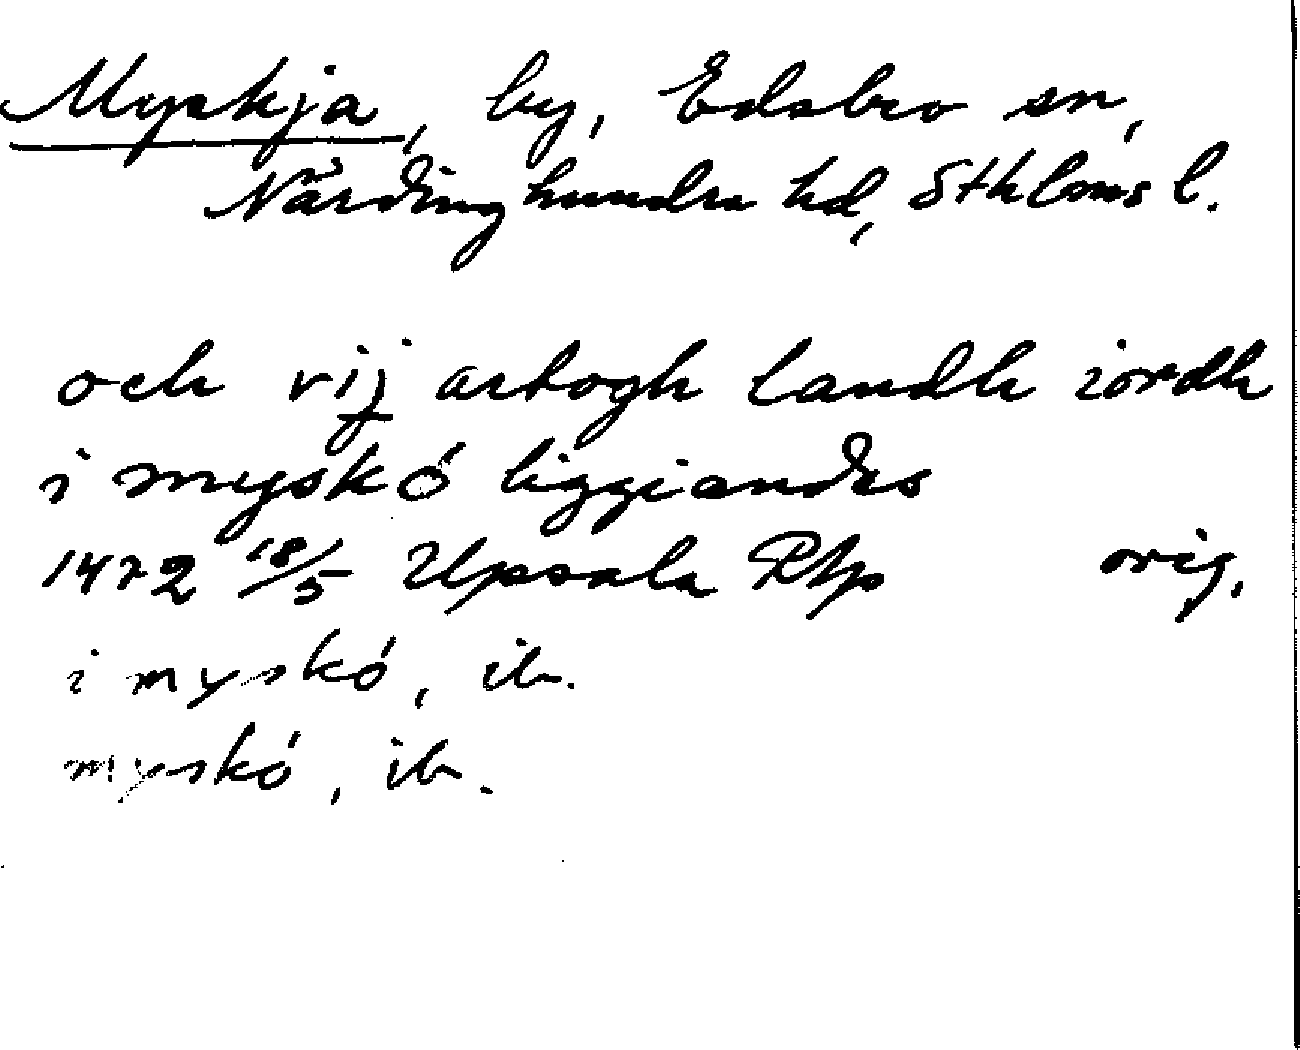 Myskja, by, Edsbro sn,
Närdinghundra hd, Sthlms l.
och vij artogh landh iordh
i myskó liggiandes
1472 18/5 Upsala RAp orig.
i myskó, ib.
myskó, ib.